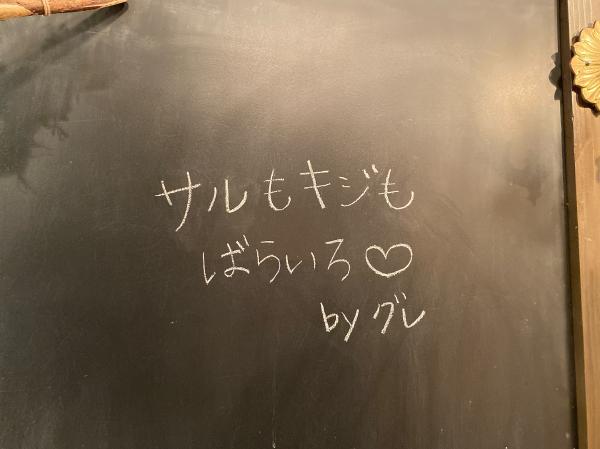 サルもキジも
ばらいろ♡
by グレ